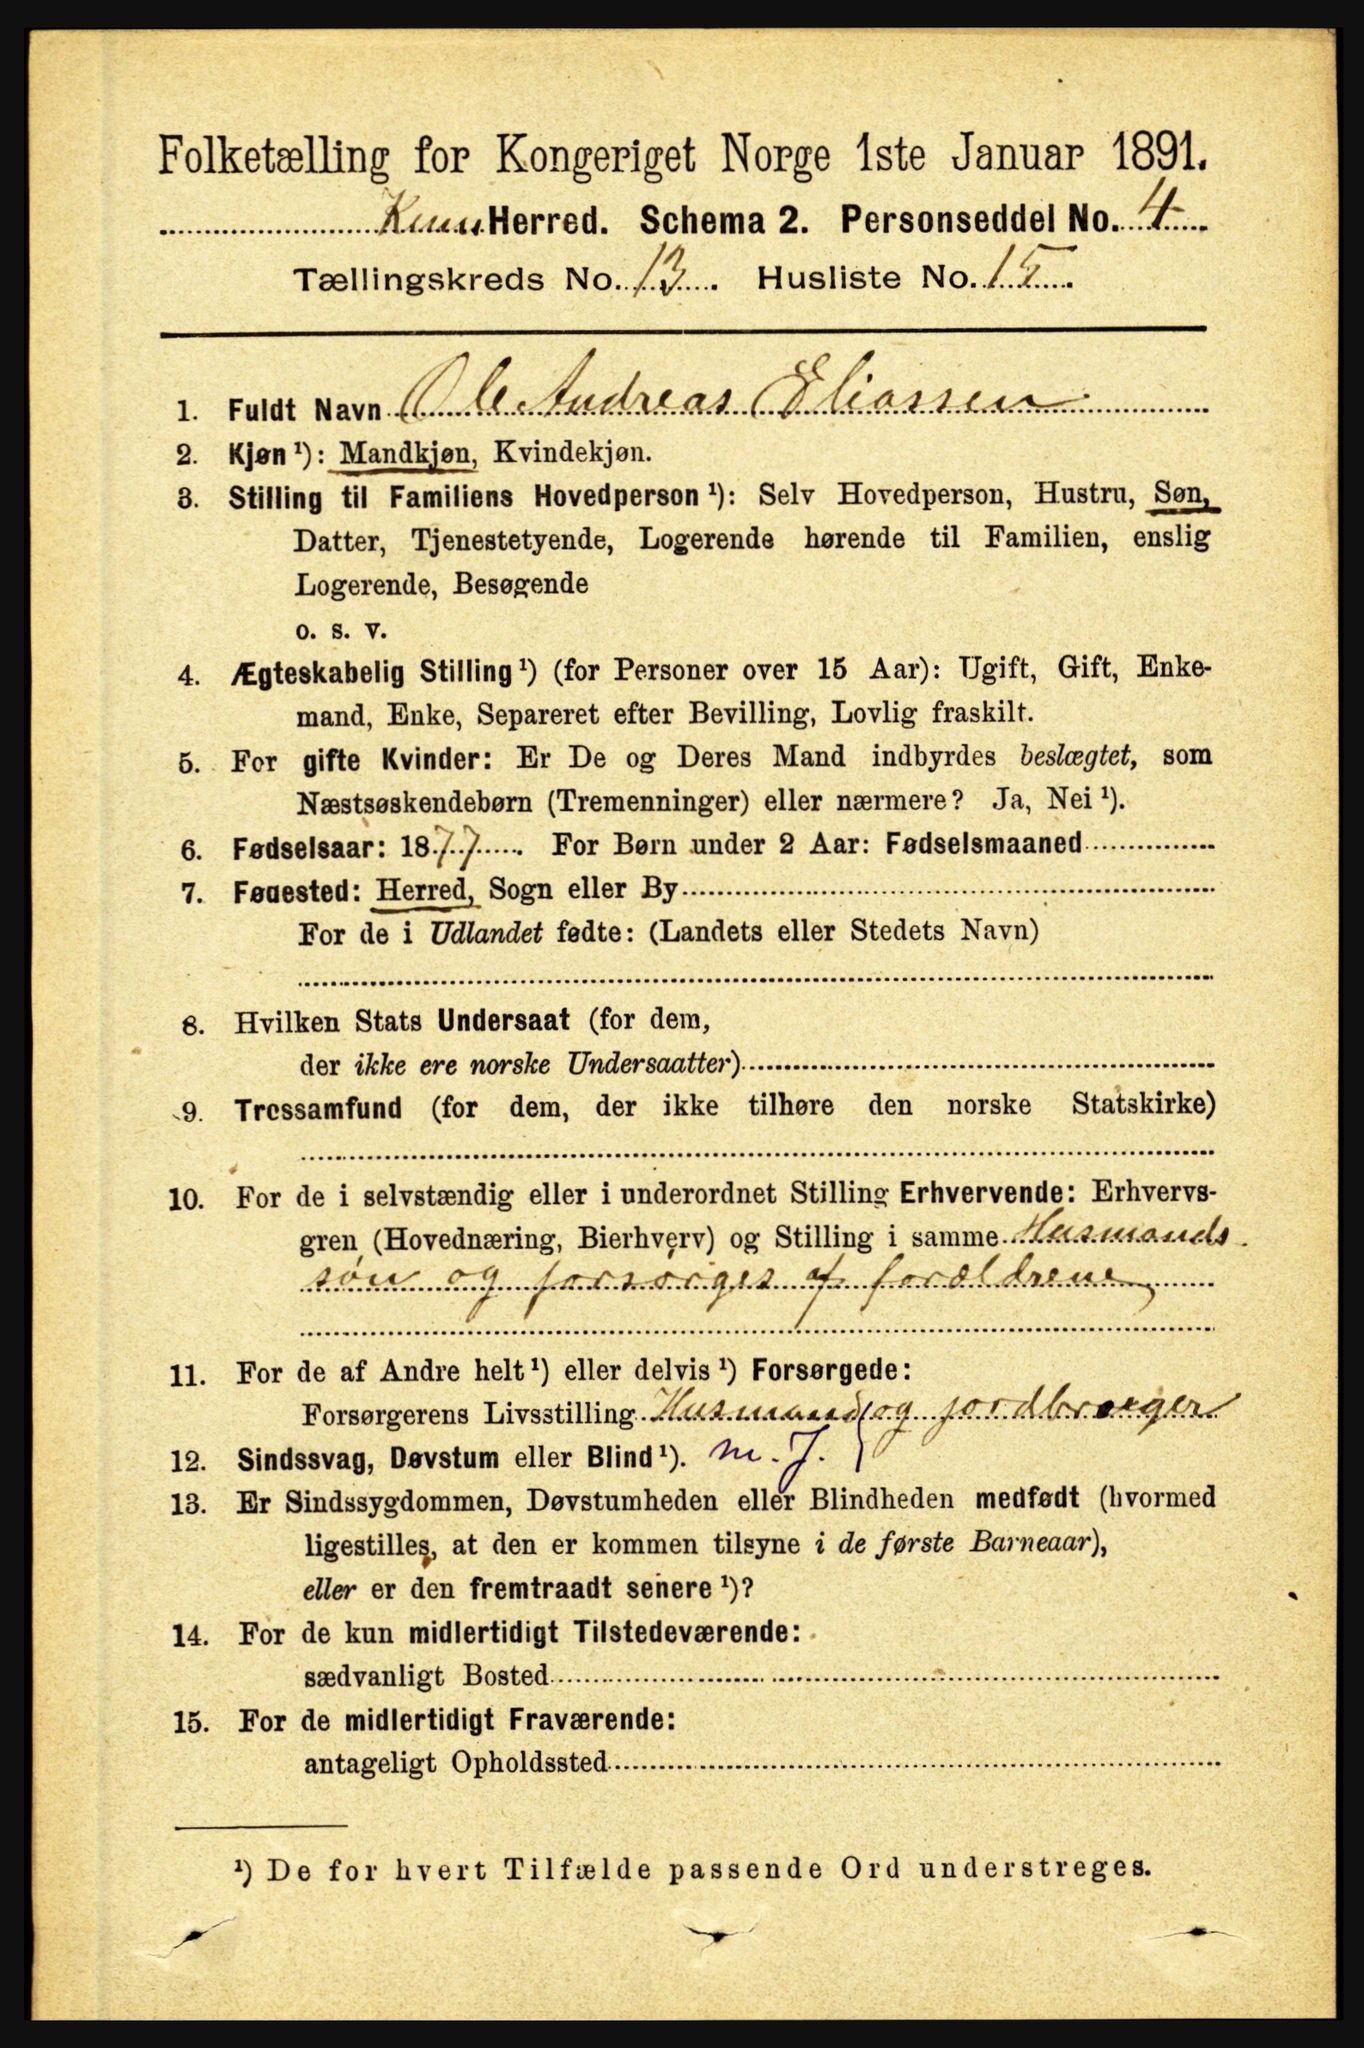 Folketælling for Kongeriget Norge 1ste Januar 1891.
Herred. Schema 2. Personseddel No. 4
Tællingskreds No. 13. Husliste No. 15.
1. Fuldt Navn Ole Andreas Eliassen
2. Kjøn ¹): Mandkjøn, Kvindekjøn.
3. Stilling til Familiens Hovedperson ¹): Selv Hovedperson, Hustru, Søn,
Datter, Tjenestetyende, Logerende hørende til Familien, enslig
Logerende, Besøgende
o. s. v.
4. Ægteskabelig Stilling ¹) (for Personer over 15 Aar): Ugift, Gift, Enke-
mand, Enke, Separeret efter Bevilling, Lovlig fraskilt.
5. For gifte Kvinder: Er De og Deres Mand indbyrdes beslægtet, som
Næstsøskendebørn (Tremenninger) eller nærmere? Ja, Nei ¹).
6. Fødselsaar: 1877. For Børn under 2 Aar: Fødselsmaaned
7. Fødested: Herred, Sogn eller By
For de i Udlandet fødte: (Landets eller Stedets Navn)
8. Hvilken Stats Undersaat (for dem,
der ikke ere norske Undersaatter)
9. Trossamfund (for dem, der ikke tilhøre den norske Statskirke)
10. For de i selvstændig eller i underordnet Stilling Erhvervende: Erhvervs-
gren (Hovednæring, Bierhverv) og Stilling i samme Husmands
søn og forsørges af forældrene
11. For de af Andre helt ¹) eller delvis ¹) Forsørgede:
Forsørgerens Livsstilling Husmand og jordbruger
12. Sindssvag, Døvstum eller Blind ¹). m. J.
13. Er Sindssygdommen, Døvstumheden eller Blindheden medfødt (hvormed
ligestilles, at den er kommen tilsyne i de første Barneaar),
eller er den fremtraadt senere ¹)?
14. For de kun midlertidigt Tilstedeværende:
sædvanligt Bosted
15. For de midlertidigt Fraværende:
antageligt Opholdssted
¹) De for hvert Tilfælde passende Ord understreges.